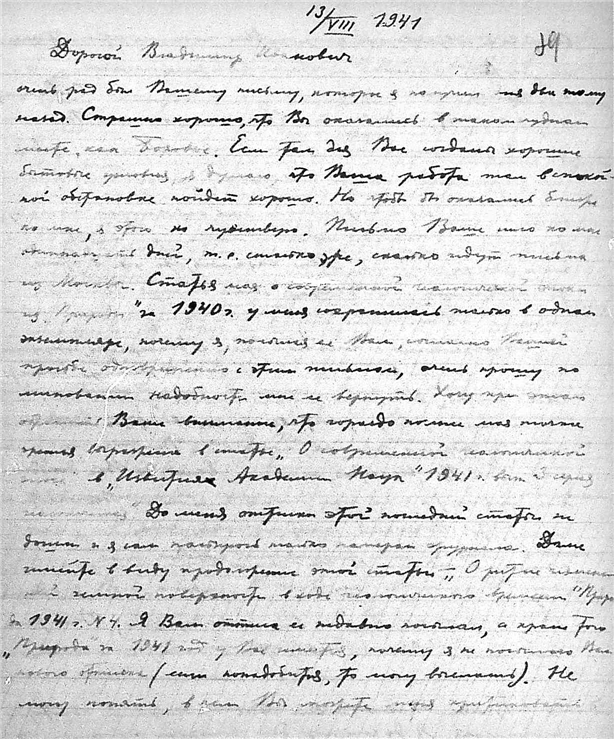 13/VIII 1941
Дорогой Владимир Иванович
очень рад был Вашему письму, которое я получил дня два тому
назад. Страшно хорошо, что Вы оказались в таком чудном
месте, как Боровое. Если там для Вас созданы хорошие
бытовые условия, я думаю, что Ваша работа там в спокой-
ной обстановке пойдет хорошо. Но чтобы Вы оказались ближе
ко мне, я этого не чувствую. Письмо Ваше шло ко мне
дней, т.е. столько же, сколько идут письма
из Москвы. Статья моя о современной геологической эпохе
из "Природы" за 1940 г. у меня сохранилась только в одном
экземпляре, почему я, посылая ее Вам, согласно Вашей
просьбе одновременно с этим письмом, очень прошу по
миновании надобности мне ее вернуть. Хочу при этом
обратить Ваше внимание, что гораздо полнее моя точка
зрения выражена в статье "О современной геологической
эпохе" в "Известиях Академии Наук" 1941 г. вып. 3 серия
геологическая" До меня оттиски этой последней статьи не
дошли и я сам
имейте в виду продолжение этой статьи – "О ритме
земной поверхности в ходе геологического времени" "Природа"
за 1941 г. № 4. Я Вам оттиск ее недавно посылал, а кроме того
"Природа за 1941 год у Вас имеется, почему я не посылаю Вам
нового оттиска (если понадобится, то могу выслать). Не
могу понять, в чем Вы можете меня